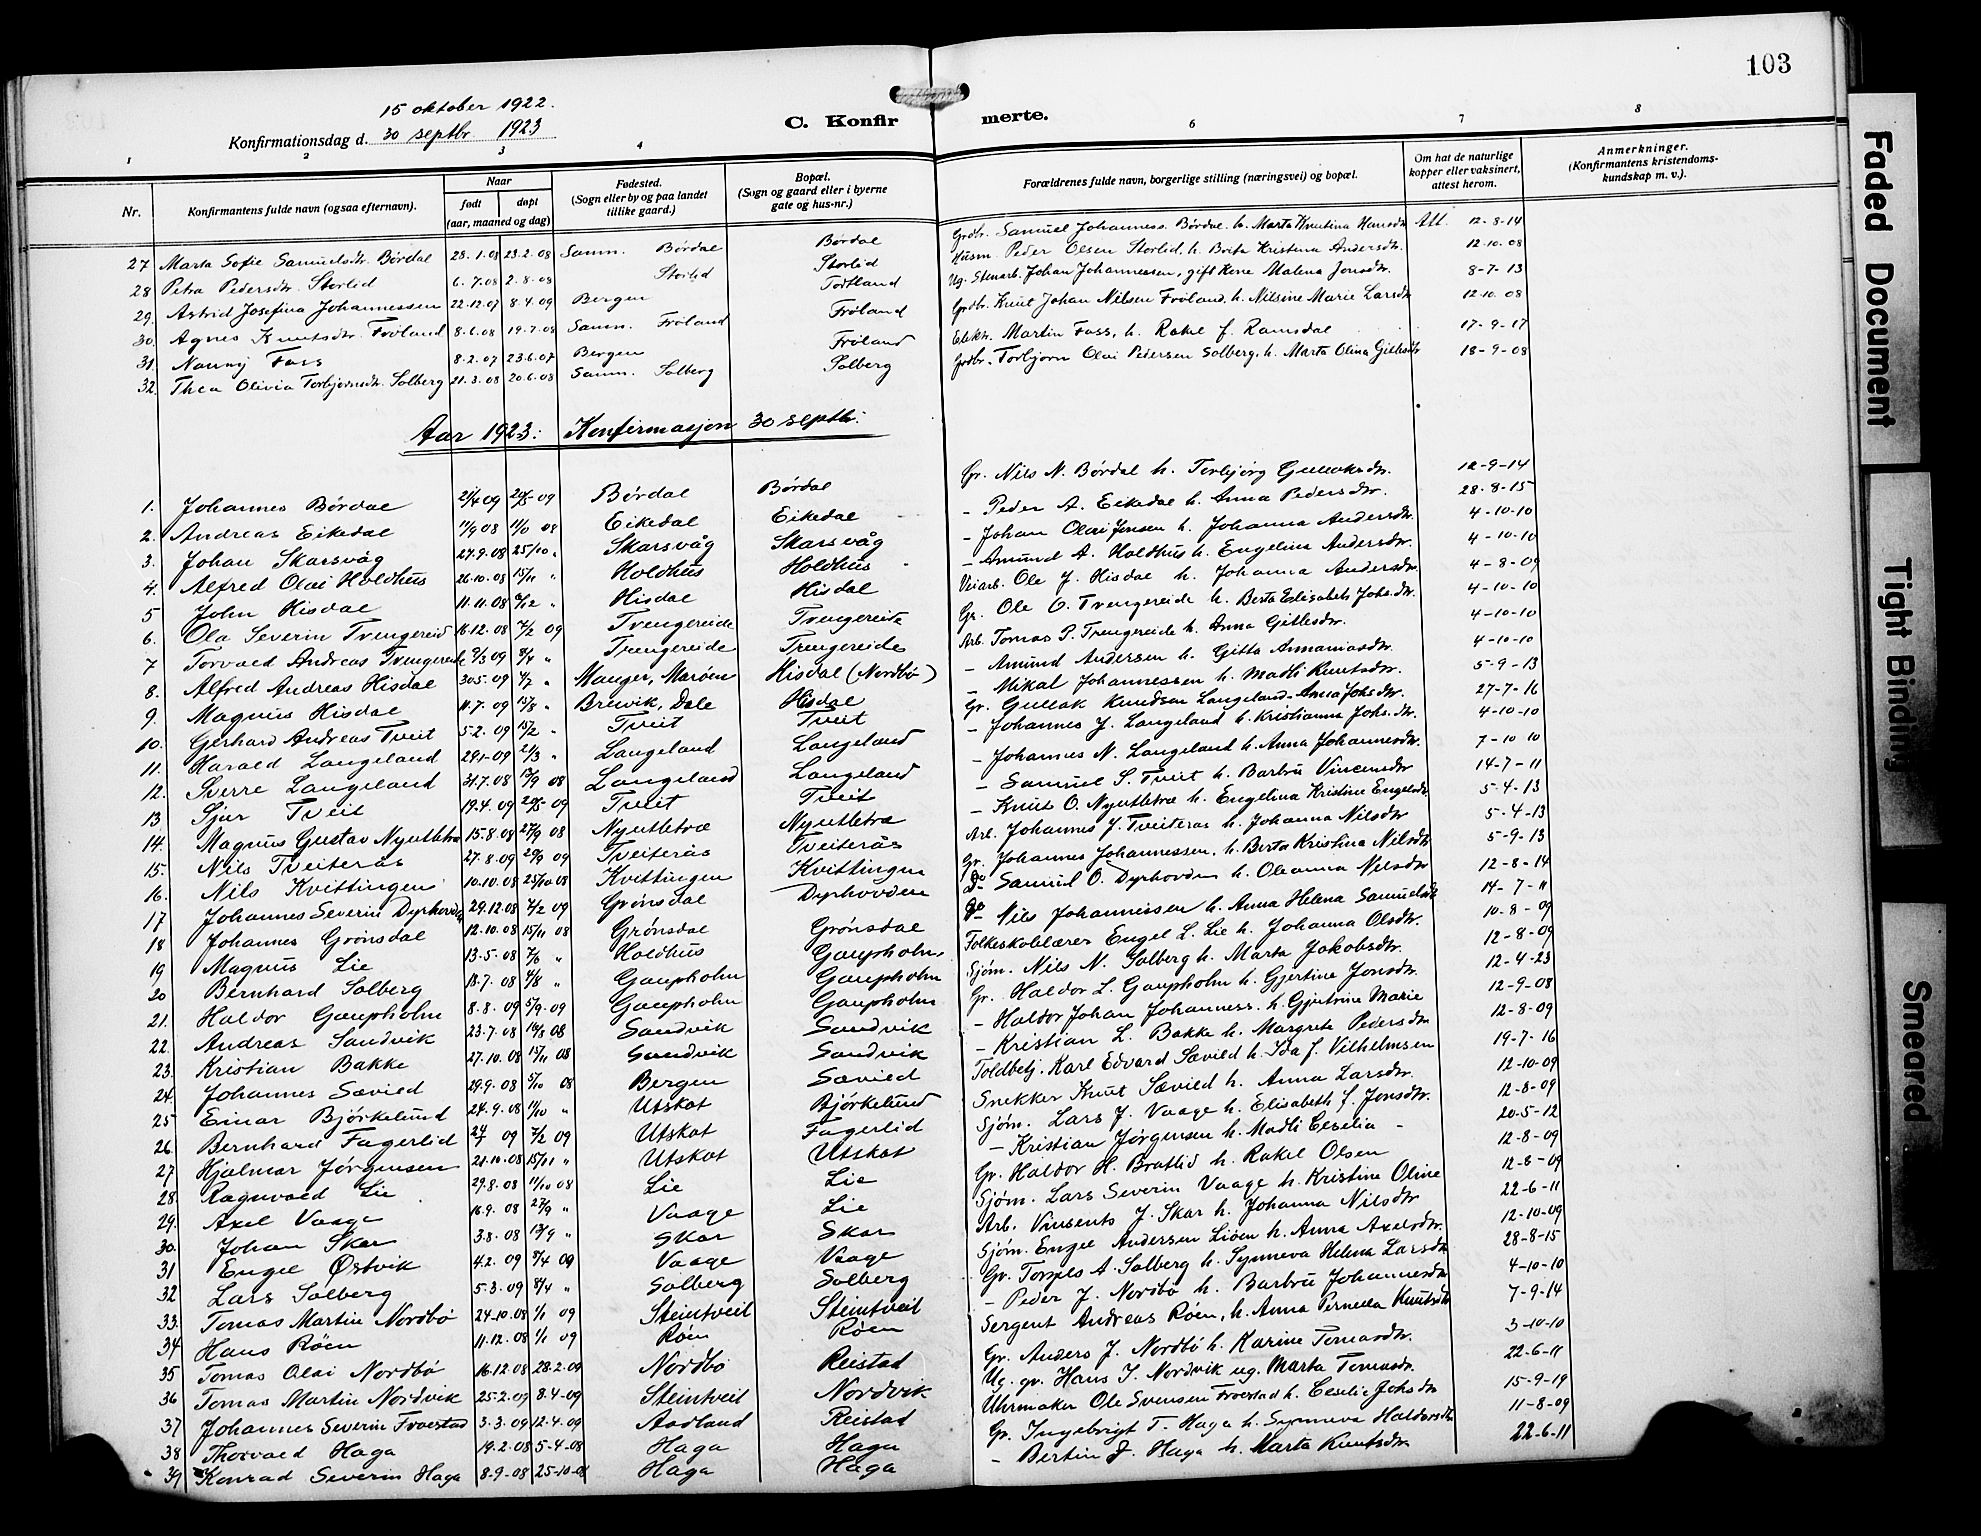 103
15 oktober 1922.
Konfirmationsdag d. 30 septbr 1923
C. Konfirmerte.
1 2 3 4 6 7 8
Nr.
Konfirmantens fulde navn (ogsaa efternavn).
Naar
født døpt
(aar, maaned og dag)
Fødested.
(Sogn eller by og paa landet
tillike gaard.)
Bopæl.
(Sogn og gaard eller i byerne
gate og hus-nr.)
Forældrenes fulde navn, borgerlige stilling (næringsvei) og bopæl.
Om hat de naturlige
kopper eller vaksinert,
attest herom.
Anmerkninger.
(Konfirmantens kristendoms-
kundskap m. v.).
27 Marta Sofie Samuelsdr. Børdal 23.1.08 23.2.08 Samn. Børdal Børdal Grdbr. Samuel Johanness. Børdal h. Marta Knutina Hansdr. Att. 12-8-14
28 Petra Pedersdr. Storlid 6.7.08 2.8.08 Storlid Storlid Husm. Peder Olsen Storlid, h. Brita Kristina Andersdtr. 12.10.08
29. Astrid Josefina Johannessen 22.12.07 8.4.09 Bergen Todtland Ug. Stenarb. Johan Johannessen, gift Kone Malena Jonsdr. 8-7-13
30. Agnes Knutsdr. Frøland 8.6.08 19.7.08 Samn. Frøland Frøland Grdbr. Knut Johan Nilsen Frøland, h. Nilsine Marie Larsdr 12.10.08
31. Nanny Foss 8.2.07 23.6.07 Bergen Frøland Elektr. Martin Foss, h. Rakel f. Ramsdal 17-9-17
32. Thea Olivia Torbjørnsdr. Solberg 21.3.08 20.6.08 Samn. Solberg Solberg Grdbr. Torbjørn Olai Pedersen Solberg, h. Marta Olina Gitlesdr 18-9-08
Aar 1923: Konfirmasjon 30 septbr.
1. Johannes Børdal 21/4 09 20/5 09 Børdal Børdal Gr. Nils N. Børdal h. Torbjørg Gulleiksdr. 12-9-14
2. Andreas Eikedal 11/9 08 11/10 08 Eikedal Eikedal - Peder A. Eikedal h. Anna Pedersdtr. 28-8-15
3. Johan Skarsvåg 27.9.08 25/10 " Skarsvåg Skarsvåg - Johan Olai Jensen h. Johanna Andersdtr. 4-10-10
4. Alfred Olai Holdhus 26.10.08 15/11 " Holdhus Holdhus - Amund A. Holdhus h. Engelina Andersdtr. 4-10-10
5 John Hisdal 11.11.08 6/12 " Hisdal Hisdal Veiarb. Ole J. Hisdal h. Johanna Andersdtr. 4-8-09
6. Ola Severin Trengereid 16.12.08 7/2 09 Trengereide Trengereide Gr. Ole O. Trengereide h. Berta Elisabeth Johs.dr. 4-10-10
7 Torvald Andreas Trengereide 9/3 09 8/4 " Trengereide Trengereide Arb. Tomas P. Trengereide h. Anna Gitlesdr. 4-10-10
8. Alfred Andreas Hisdal 30.5.09 4/7 " Manger, Marøen Hisdal (Nordbø) - Amund Andersen h. Gitta Annaniasdtr. 4-10-10
9. Magnus Hisdal 11.7.09 15/8 " Brevik, Dale Hisdal - Mikal Johannessen h. Madli Knutsdtr. 5-9-13
10. Gerhard Andreas Tveit 5.2.09 15/2 " Tveit Tveit Gr. Gullak Knudsen Langeland - Anna Johsdtr. 27-7-16
11. Harald Langeland 29.1.09 21/3 " Langeland Langeland - Johannes J. Langeland h. Kristianna Johs.dtr. 4-10-10
12. Sverre Langeland 31.7.08 13/9 08 Langeland Langeland - Johannes N. Langeland h. Anna Johannesdtr. 7-10 10
13 Sjur Tveit 19.4.09 20/5 09 Tveit Tveit - Samuel S. Tveit h. Barbru Vincensdtr 14-7-11
14. Magnus Gustav Nyutletræ 15.8.08 27/9 08 Nyutletræ Nyutletræ - Knut O. Nyutletræ h. Engelina Kristine Engelsdtr. 5-4-13
15. Nils Tveiterås 27.8.09 20/9 09 Tveiterås Tveiterås Arb. Johannes J. Tveiterås h. Johanna Nilsdtr 5-4-13
16. Nils Kvittingen 10.10.08 25/10 08 Kvittingen Kvittingen Gr. Johannes Johannessen, h. Berta Kristina Nilsdtr 5-9-13
17 Johannes Severin Dyrhovden 29.12.08 7/2 09 Grønsdal Dyrhovden Do Samuel O. Dyrhovden h. Oleanna Nilsdtr 12-8-14
18 Johannes Grønsdal 12.10.08 15/11 08 Grønsdal Grønsdal Do Nils Johannessen h. Anna Helena Samuelsdtr 14-7-11
19 Magnus Lie 13.5.08 7/6 " Holdhus Gaupholm Folkeskolelærer Engel L. Lie h. Johanna Olsdtr. 10-8-09
20 Bernhard Solberg 18.7.08 4/8 " Gaupholm Gaupholm Sjøm. Nils N. Solberg h. Marta Jakobsdtr. 12-8-09
21. Haldor Gaupholm 8.8.09 5/9.09 Gaupholm Gaupholm Gr. Haldor L. Gaupholm h. Gjertine Jonsdtr. 12-4-23
22. Andreas Sandvik 23.7.08 16/8 08 Sandvik Sandvik - Haldor Johan Johanness. h. Gjertrine Marie 12-9-08
23. Kristian Bakke 27.10.08 15/11 08 Sandvik Sandvik - Kristian L. Bakke h. Margrete Pedersdtr 12-8-09
24. Johannes Sævild 29.9.08 5/10 08 Bergen Sævild Toldbetj. Karl Edvard Sævild h. Ida f. Vilhelmsen 19-7-16
25 Einar Bjørkelund 24.9.08 11/10 " Utskot Bjørkelund Snekker Knut Sævild h. Anna Larsdtr. 12-10-09
26. Bernhard Fagerlid 24/7 09 7/2 09 Utskot Fagerlid Sjøm. Lars J. Vaage h. Elisabeth f. Jonsdtr. 12-8-09
27 Hjalmar Jørgensen 21.10.08 15/11 " Utskot Utskot - Kristian Jørgensen h. Madli Cecelia - 20-5-12
28. Ragnvald Lie 29.8.08 11/10 08 Lie Lie Gr. Haldor H. Bratlid h. Rakel Olsen 12-8-09
29. Axel Vaage 16.9.08 27/9 " Vaage Lie Sjøm. Lars Severin Vaage h. Kristine Oline 12-8-09
30. Johan Skar 3.8.08 13/9 " Skar Skar Arb. Vinsents J. Skar h. Johanna Nilsdtr 22-6-11
31 Engel Østvik 4.2.09 8/4 09 Vaage Vaage Sjøm. Engel Andersen Liøen h. Anna Axelsdtr. 12-10-09
32 Lars Solberg 5.3.09 8/4 " Solberg Solberg Gr. Tomas A. Solberg h. Synneva Helena Larsdtr 28-8-15
33. Tomas Martin Nordbø 24-10.08 1/1 09 Steintveit Steintveit - Peder J. Nordbø h. Barbru Johannesdtr 4-10-10
34 Hans Røen 11.12.08 1/1 09 Røen Røen Sergent Andreas Røen, h. Anna Pernella Knutsdtr 7-9-14
35 Tomas Olai Nordbø 16.12.08 28-2-09 Nordbø Reistad Gr. Anders J. Nordbø h. Karine Tomasdtr. 3-10-10
36 Tomas Martin Nordvik 25-2.09 8.4-09 Steintveit Nordvik Ug. gr. Hans J. Nordvik ug. Marta Tomasdtr. 22-6-11
37 Johannes Severin Froestad 3-3.09 12.4-09 Aadland Reistad Uhrmaker Ole Svensen Froestad h. Ceselie Johsdtr 15-9-19
38 Thorvald Haga 19.2-08 5-4-08 Haga Haga Gr. Ingebrigt T. Haga h. Synneva Haldorsdtr 11-8-09
39 Konrad Severin Haga 8-9-08 25-10-08 Haga Haga - Bertin J. Haga h. Marta Knutsdtr 22-6-11
Faded Document
Tight Binding
Smeared